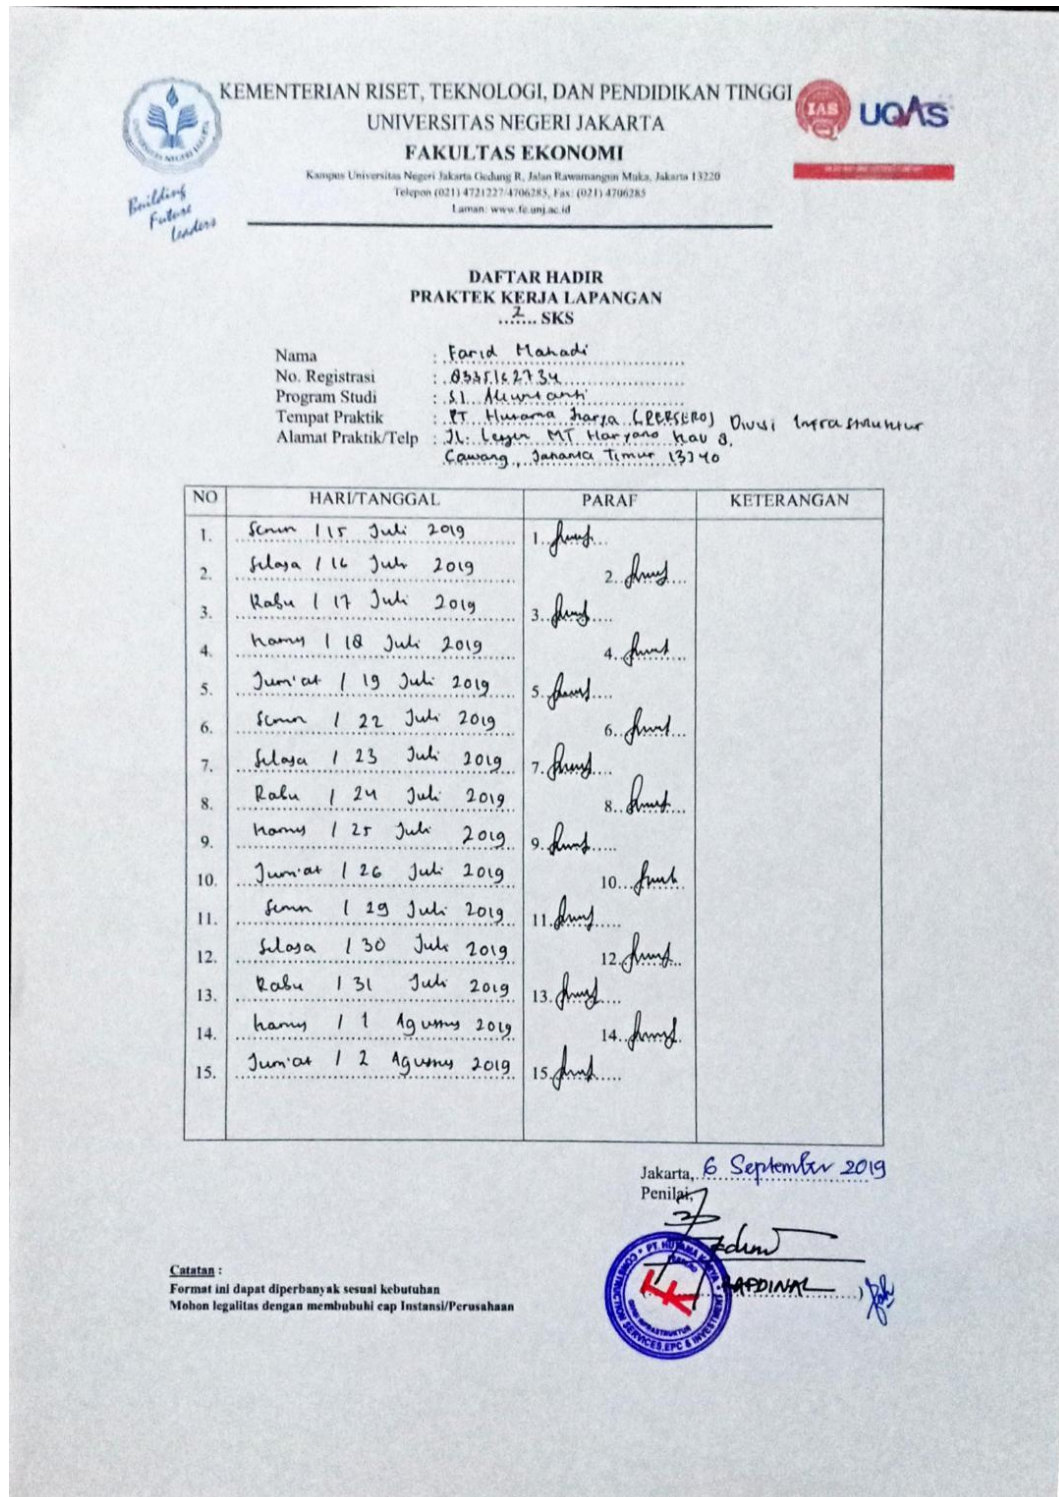 KEMENTERIAN RISET, TEKNOLOGI, DAN PENDIDIKAN TINGGI
UNIVERSITAS NEGERI JAKARTA
FAKULTAS EKONOMI
Kampus Universitas Negeri Jakarta Gedung R, Jalan Rawamangun Muka, Jakarta 13220
Telepon (021) 4721227/4706285, Fax: (021) 4706285
Laman: www.fe.unj.ac.id
UNIVERSITAS NEGERI JAKARTA
Building
Future
Leaders
IAS
UQAS
DAFTAR HADIR
PRAKTEK KERJA LAPANGAN
..2.. SKS
Nama : Farid Mahadi
No. Registrasi : 8335162734
Program Studi : S1 Akuntansi
Tempat Praktik : PT. Hutama Karya (PERSERO) Divisi Infrastruktur
Alamat Praktik/Telp : Jl. Letjen MT Haryono Kav 8,
Cawang, Jakarta Timur 13340
NO HARI/TANGGAL PARAF KETERANGAN
1. Senin / 15 Juli 2019 1.
2. Selasa / 16 Juli 2019 2.
3. Rabu / 17 Juli 2019 3.
4. Kamis / 18 Juli 2019 4.
5. Jum'at / 19 Juli 2019 5.
6. Senin / 22 Juli 2019 6.
7. Selasa / 23 Juli 2019 7.
8. Rabu / 24 Juli 2019 8.
9. Kamis / 25 Juli 2019 9.
10. Jum'at / 26 Juli 2019 10.
11. Senin / 29 Juli 2019 11.
12. Selasa / 30 Juli 2019 12.
13. Rabu / 31 Juli 2019 13.
14. Kamis / 1 Agustus 2019 14.
15. Jum'at / 2 Agustus 2019 15.
Jakarta, 6 September 2019
Penilai,
PT. HUTAMA KARYA
DIVISI INFRASTRUKTUR
CONSTRUCTION SERVICES, EPC & INVESTMENT
Catatan :
Format ini dapat diperbanyak sesuai kebutuhan
Mohon legalitas dengan membubuhi cap Instansi/Perusahaan